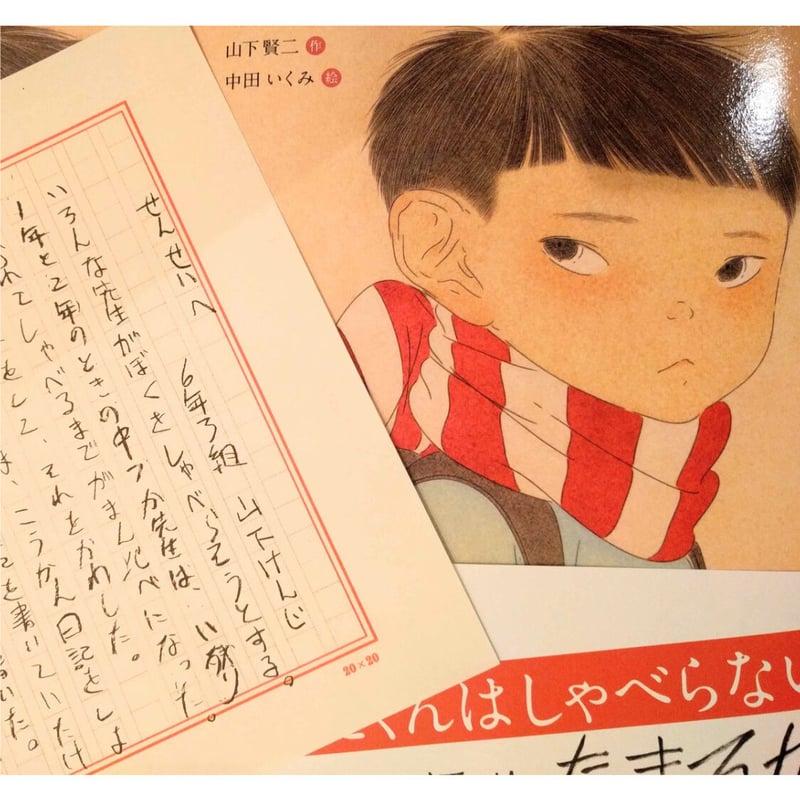 山下賢二 作
中田いくみ 絵
せんせいへ
6年3組 山下けんじ
いろんな先生がぼくをしゃべらそうとする。
1年と2年のときの中ツカ先生は、い残り
されてしゃべるまでがまん比べになった。
をして、それをかわした。
こうかん日記をしよ
を書いていたけ
20×20
くんはしゃべらない